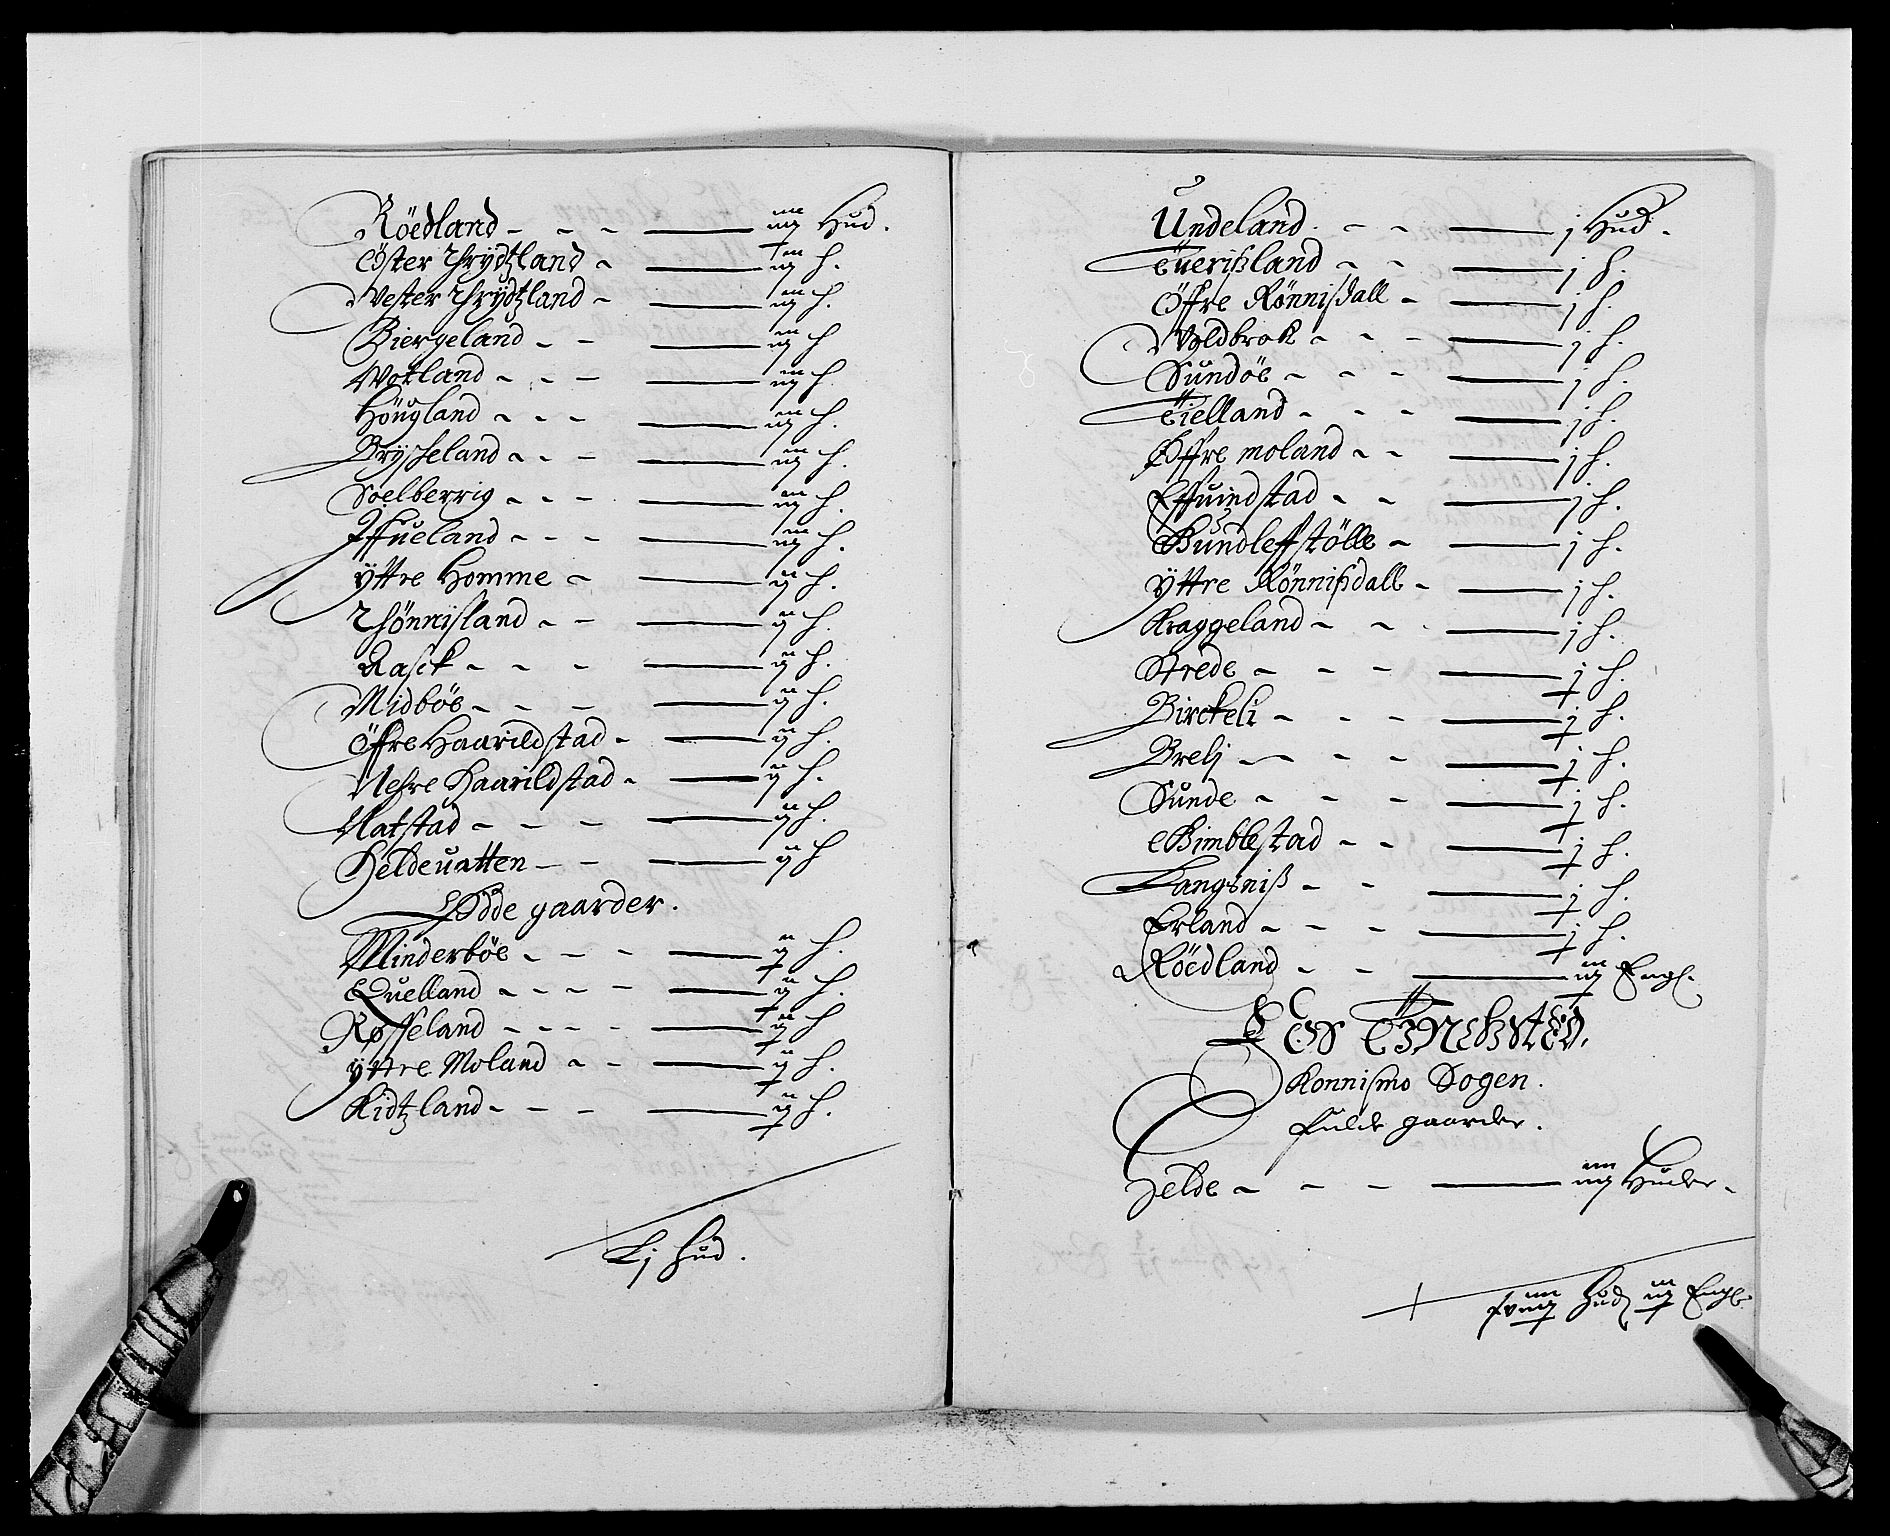 Röedland - - - iij Hud.
Öster Thrydtzland - iij h.
Wester Thrydtzland - iij h.
Biergeland - - iij h
Wotland - - - iij h.
Höugland - - - iij h.
Brysseland - - - iij h.
Soelberrig - - - iij h.
Iffueland - - - iij h.
Yttre Homme - ij h.
Thönnisland - - ij h.
Aasck - - - ij h.
Midböe - - - ij h.
Öffre Haarildstad - ij h.
Nehre Haarildstad - ij h.
Natstad - - - ij h.
Heldeuatten - - ij h
Ödde gaarder.
Minderböe - - - ij h.
Quelland - - - - ij h.
Røsseland - - - - ij h
Yttre Moland - - ij h.
Kidtzland - - - ij h.
Lj hud.
Undeland - - j Hud.
Tuerisland - - j h.
Öffre Rönnisdall - j h.
Woldbrok - - - j h.
Sundöe - - - j h.
Tielland - - - j h.
Öffre moland - - j h.
Effuindstad - - j h.
Gundleffstölle - j h.
Yttre Rönnisdall - j h.
Kraggeland - - j h.
Strede - - - j h.
Birckeli - - - j h.
Brelj - - - j h.
Sunde - - - j h.
Gimblestad - - j h.
Langnis - - j h.
Erland - - - j h.
Röedland - - iij Engl.
Konnismo Sogen.
Fulde gaarder.
Helde - - - iiij Huder.
Hud iij Engl.